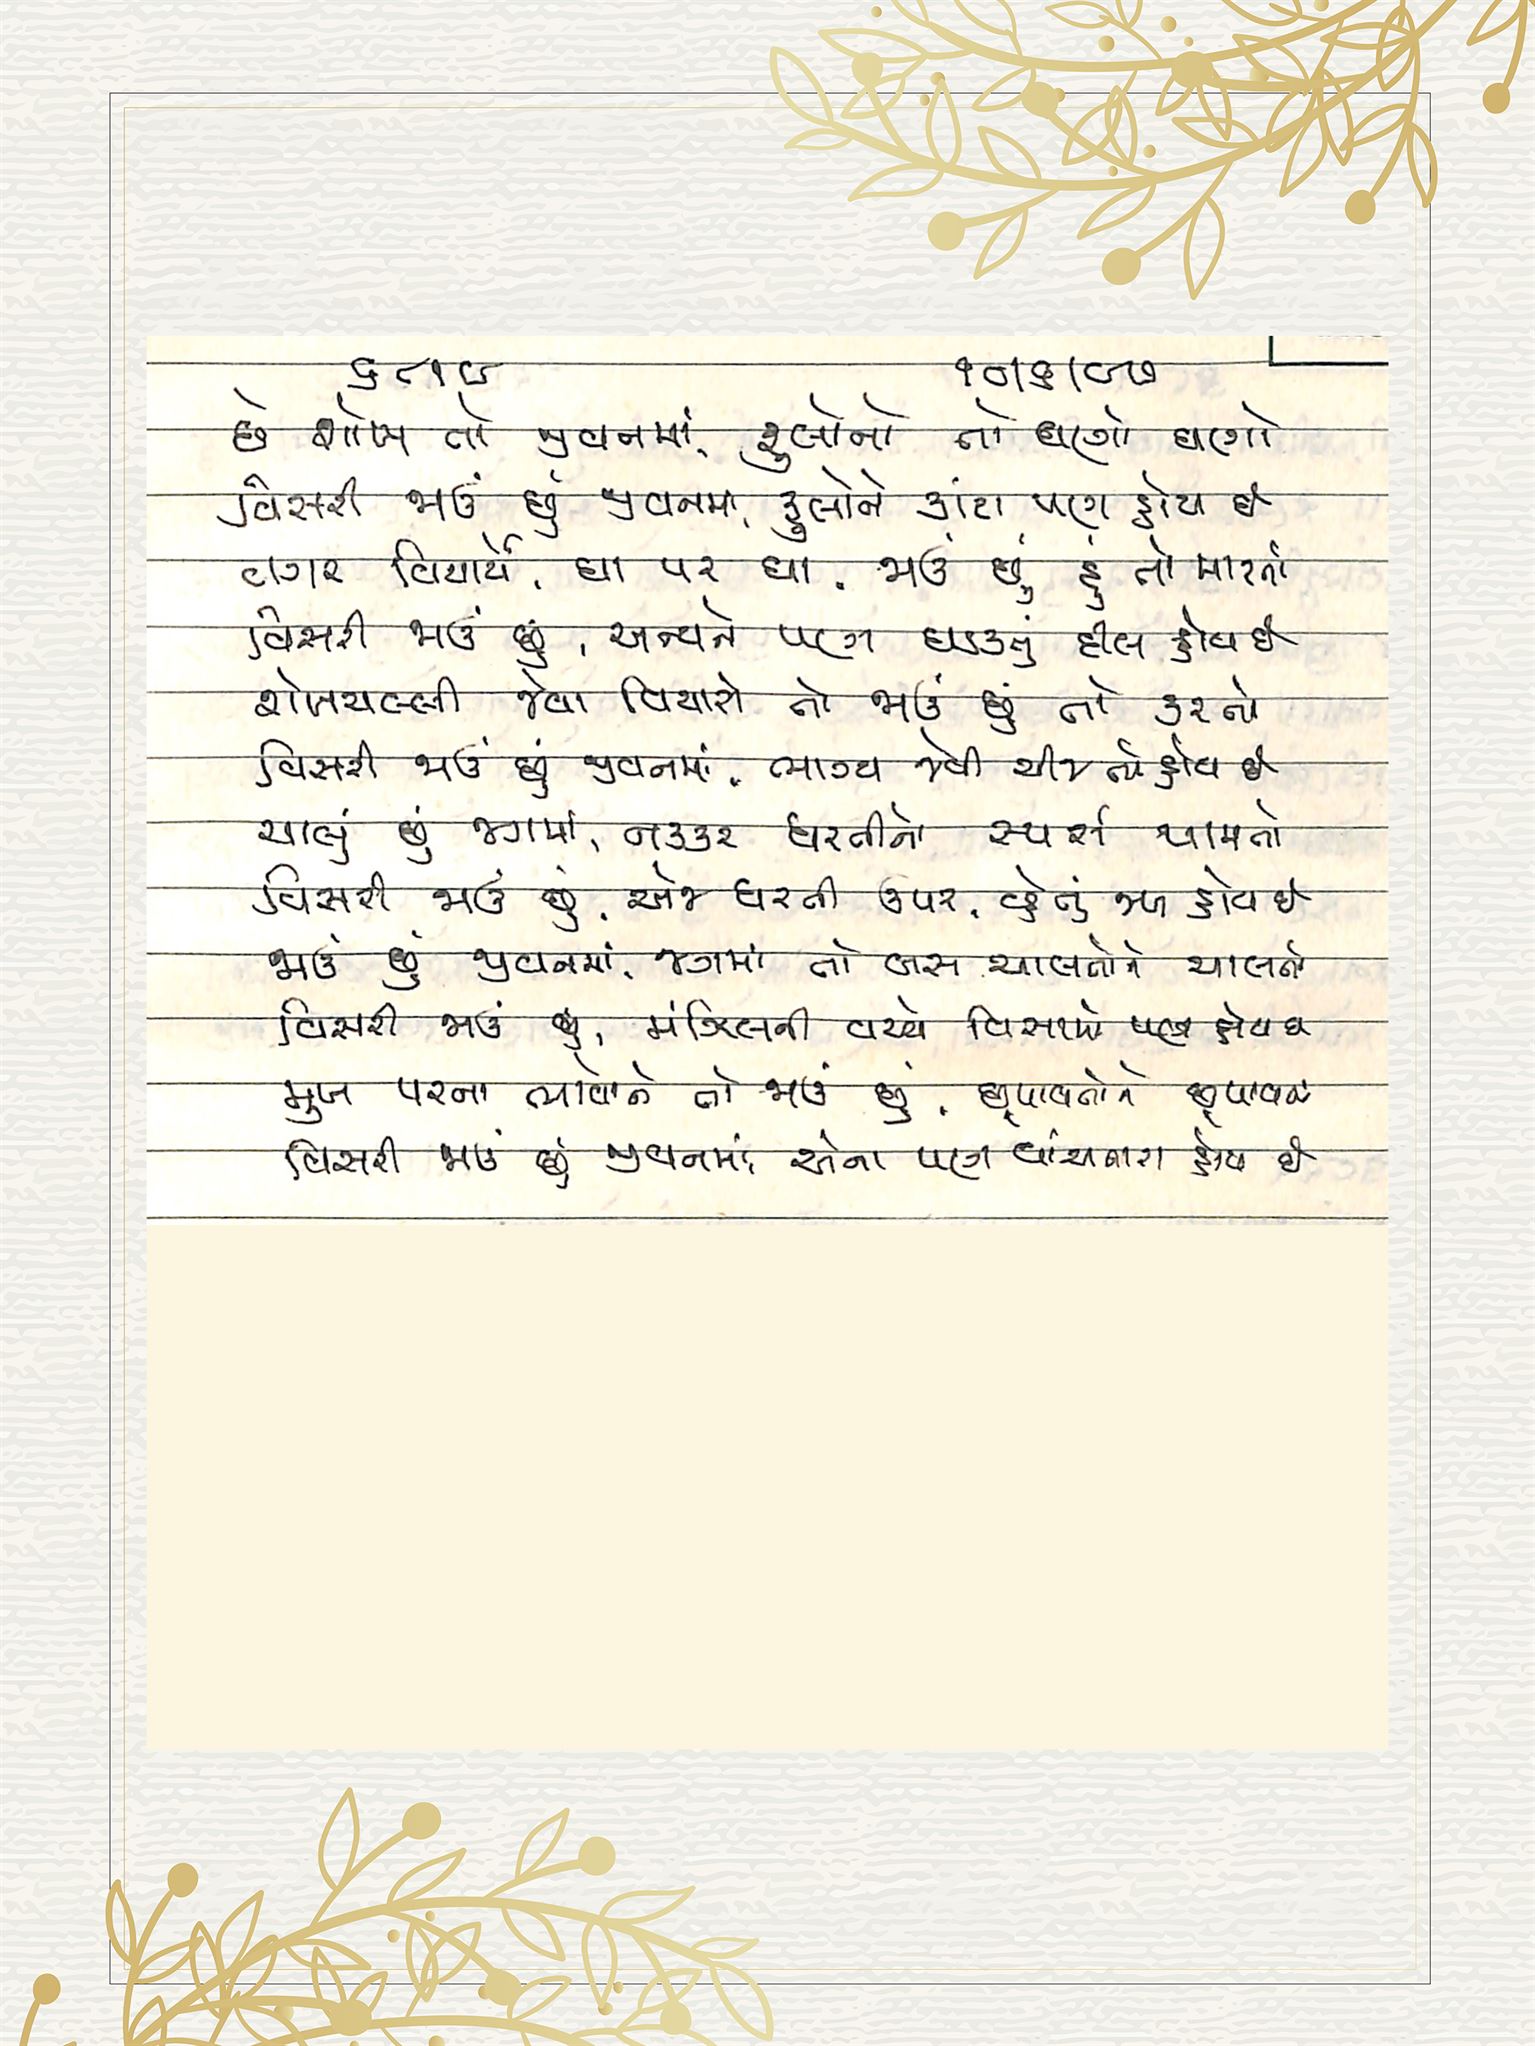 ૬૮૧૯ ૧૦/૬/૯૭
છે શોખ તો જીવનમાં, ફુલોનો તો ઘણો ઘણો
વિસરી જાઉં છું જીવનમાં, ફુલોને કાંટા પણ હોય છે
વગર વિચાર્યે, ઘા પર ઘા, જાઉં છું હું તો મારતો
વિસરી જાઉં છું, અન્યને પણ ધડકતું દીલ હોય છે
શેખચલ્લી જેવા વિચારો તો જાઉં છું તો કરતો
વિસરી જાઉં છું જીવનમાં, ભાગ્ય જેવી ચીજ તો હોય છે
ચાલું છું જગમાં, નક્કર ધરતીનો સ્પર્શ પામતો
વિસરી જાઉં છું, એજ ધરતી ઉપર, વ્હેતું જળ હોય છે
જાઉં છું જીવનમાં, જગમાં તો બસ ચાલતોને ચાલતો
વિસરી જાઉં છું, મંઝિલની વચ્ચે વિસામો પણ હોય છે
મુખ પરના ભાવોને તો જાઉં છું, છૂપાવતોને છૂપાવતો
વિસરી જાઉં છું જીવનમાં, એના પણ વાંચનારા હોય છે